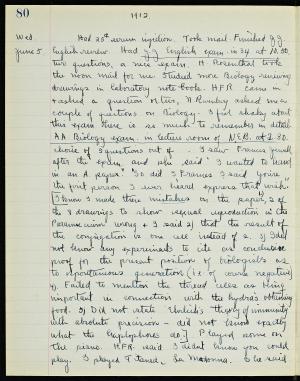 80 1912.
Wed Had 25th serum injection. Took mail. Finished J.J.
June 5 English review. Had J.J. English exam in 24 at 10.30.
ten questions, a nice exam. H. Rosenthal took
the noon mail for me. Studied more Biology reviewing
drawings in laboratory note book. HFR came in
& asked a question or two, asked me a
couple of questions on Biology. I feel shaky about
this exam there is so much to remember in detail.
AA Biology exam in lecture room of N.E.B. at 2.30.
choice of 8 questions out of I saw Francis
after the exam and she said "I wanted to hand
in an A paper". "So did I Francis I said you're
the first person I ever heard express that wish."
[I know I made three mistakes on the paper, 2 of
the 8 drawings to show sexual reproduction in the
Paramecium wrong & I said 2) that the result of
the conjugation is one cell instead of 2. 3) Did
not know any experiments to cite as conclusive
proof for the present position of biologists as
to spontaneous generation (i.e. of course negative)
4) Failed to mention the thread cells as being
important in connection with the hydra's obtaining
food. 5) Did not state Ehrlich's theory of immunity
with absolute precision - did not know exactly
what the haptophores do.] Played some on
the piano. HFR said I didn't know you could
play. I played La Madonna. & he said